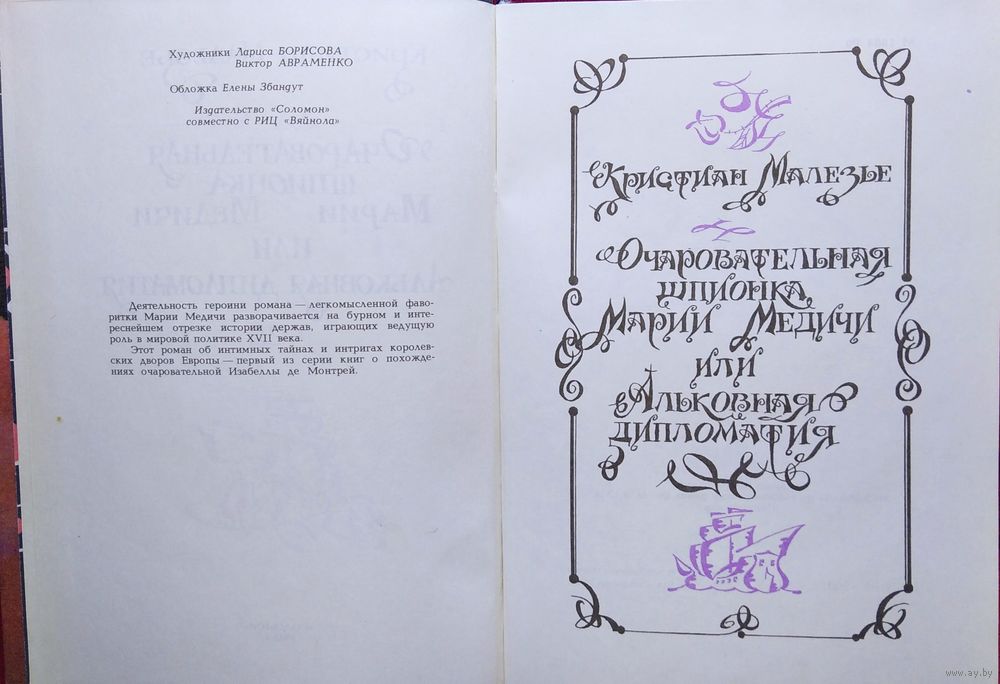 Художники Лариса БОРИСОВА
Виктор АВРАМЕНКО
Обложка Елены Збандут
Издательство «Соломон»
совместно с РИЦ «Вяйнола»
Деятельность героини романа — легкомысленной фаво-
ритки Марии Медичи разворачивается на бурном и инте-
реснейшем отрезке истории держав, играющих ведущую
роль в мировой политике XVII века.
Этот роман об интимных тайнах и интригах королев-
ских дворов Европы — первый из серии книг о похожде-
ниях очаровательной Изабеллы де Монтрей.
Кристиан Малезье
Очаровательная
шпионка
Марии Медичи
или
Альковная
дипломатия
www.ay.by